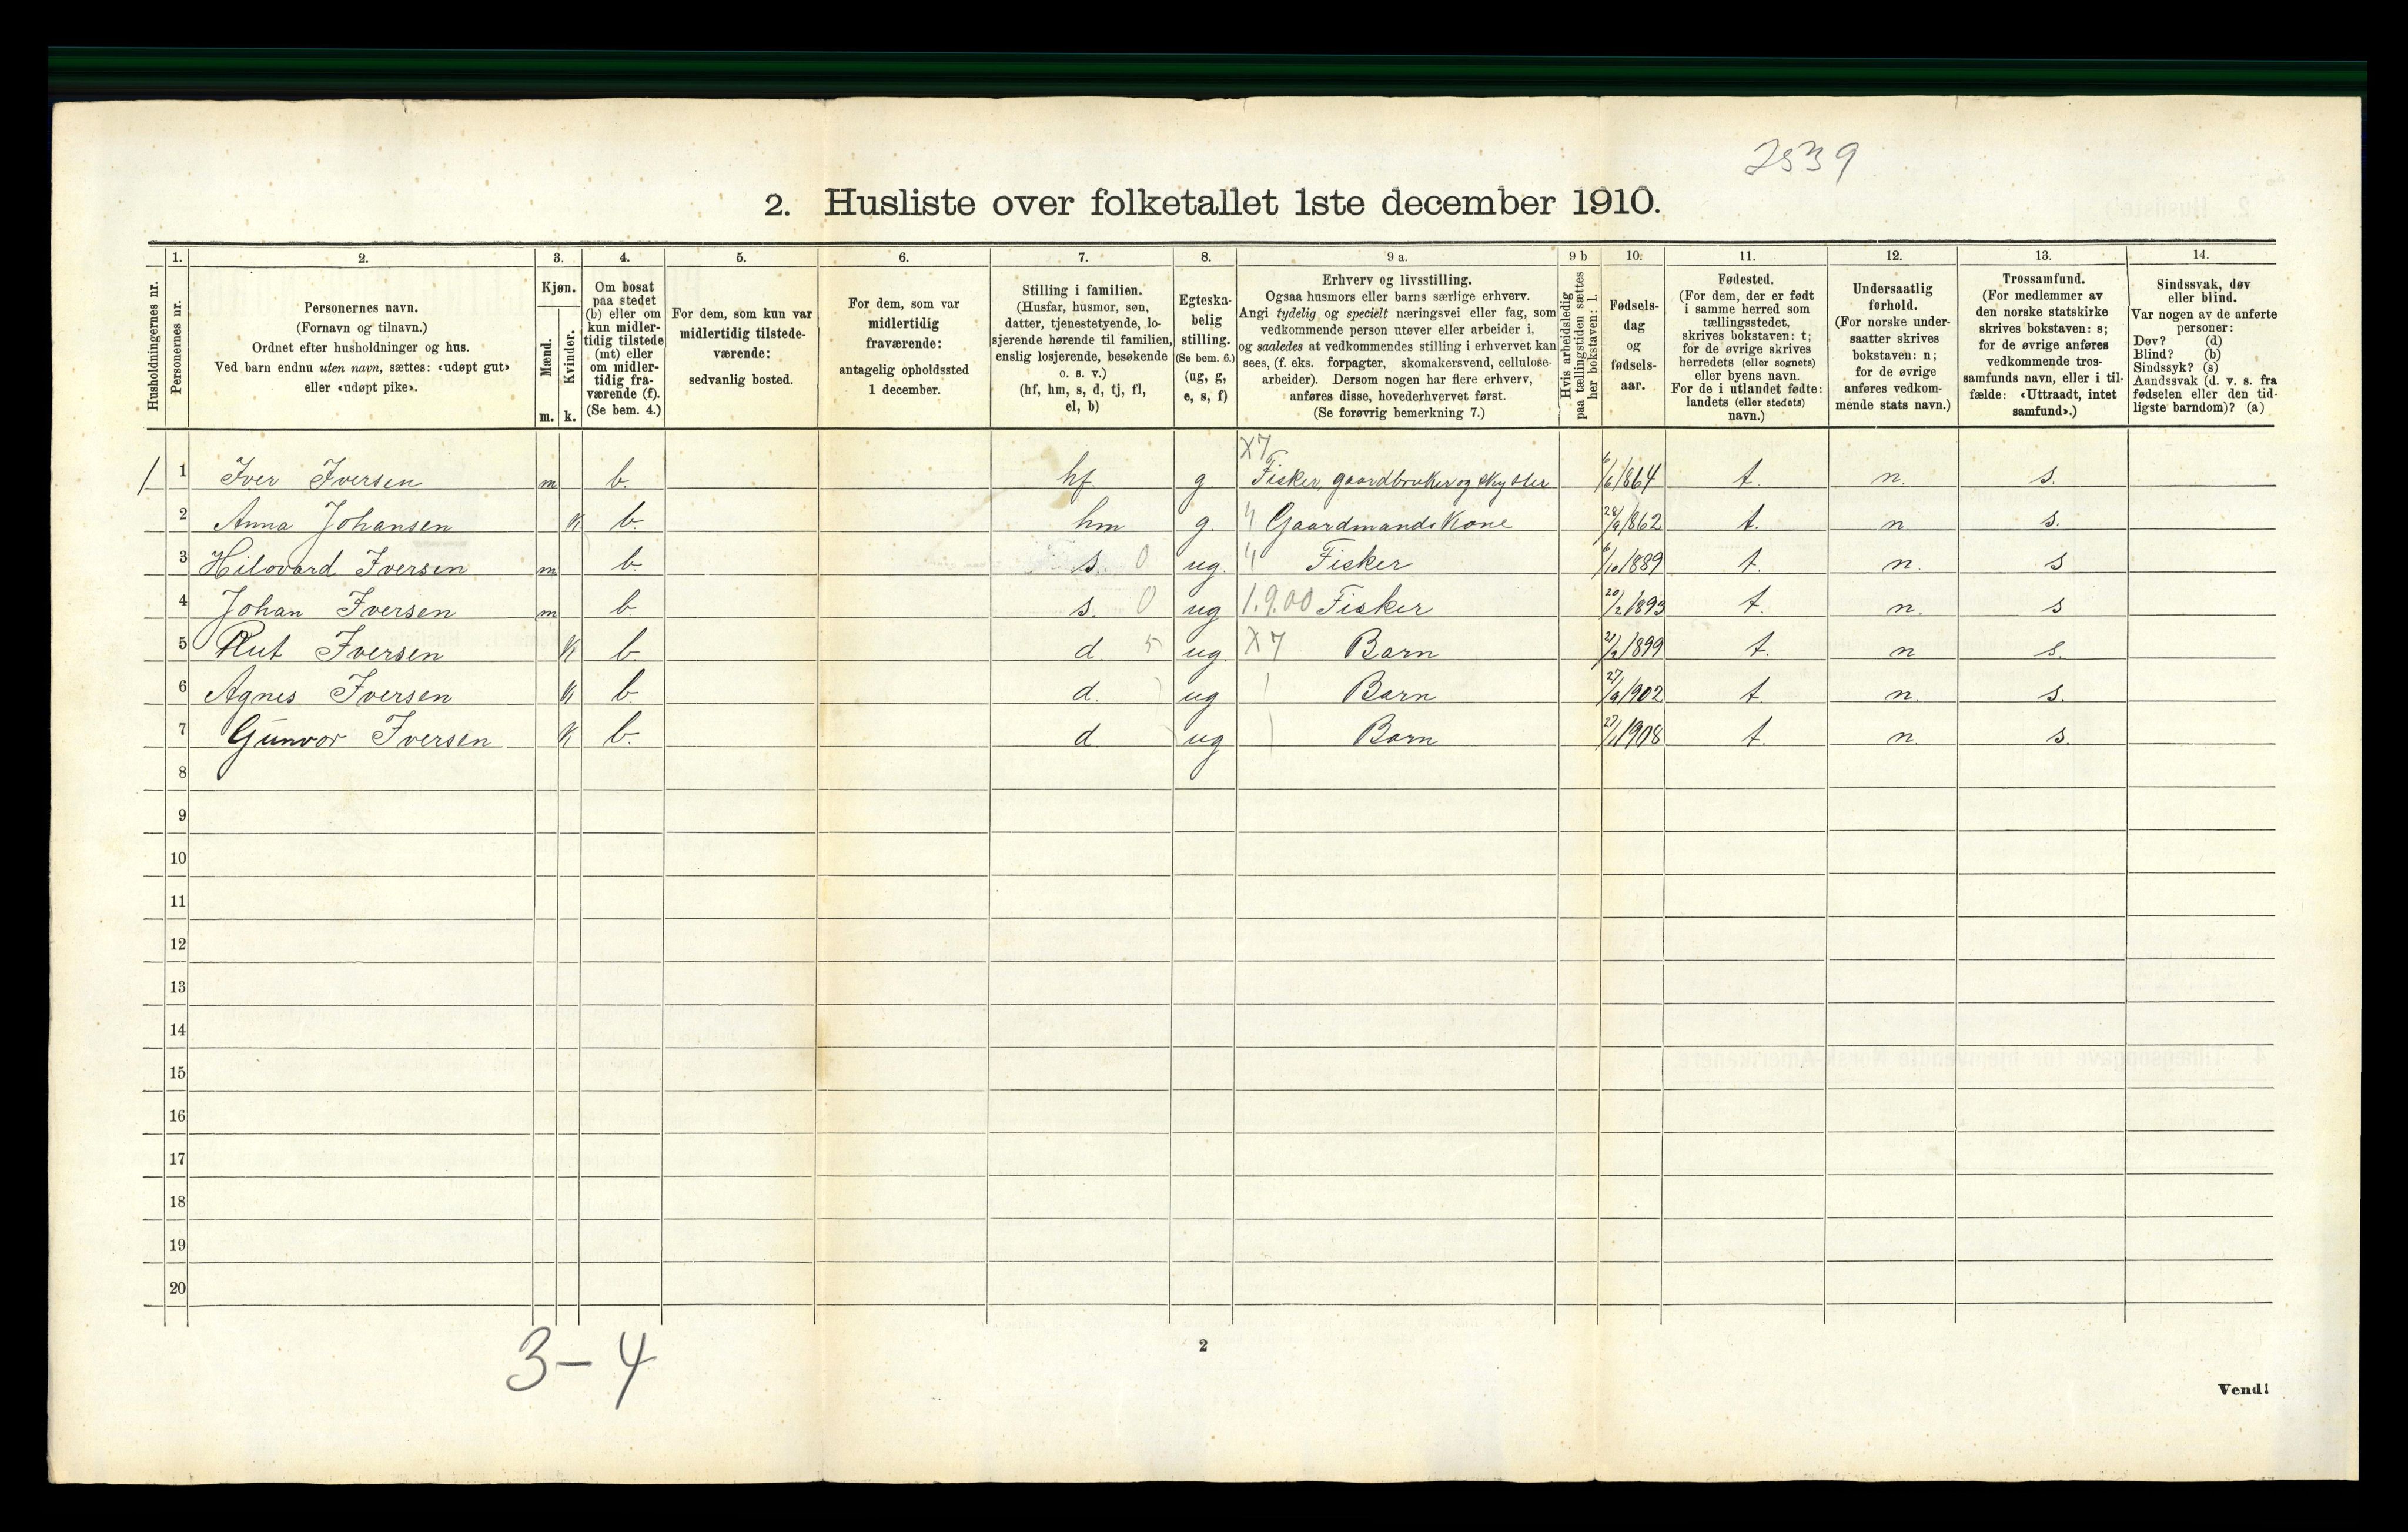 2539
2. Husliste over folketallet 1ste december 1910.
Husholdningernes nr.
1.
Personernes nr.
2.
Personernes navn.
(Fornavn og tilnavn.)
Ordnet efter husholdninger og hus.
Ved barn endnu uten navn, sættes: «udøpt gut»
eller «udøpt pike».
3.
Kjøn.
Mænd.
Kvinder.
m.
k.
4.
Om bosat
paa stedet
(b) eller om
kun midler-
tidig tilstede
(mt) eller
om midler-
tidig fra-
værende (f).
(Se bem. 4.)
5.
For dem, som kun var
midlertidig tilstede-
værende:
sedvanlig bosted.
6.
For dem, som var
midlertidig
fraværende:
antagelig opholdssted
1 december.
7.
Stilling i familien.
(Husfar, husmor, søn,
datter, tjenestetyende, lo-
sjerende hørende til familien,
enslig losjerende, besøkende
o. s. v.)
(hf, hm, s, d, tj, fl,
el, b)
8.
Egteska-
belig
stilling.
(Se bem. 6.)
(ug, g,
e, s, f)
9 a.
Erhverv og livsstilling.
Ogsaa husmors eller barns særlige erhverv.
Angi tydelig og specielt næringsvei eller fag, som
vedkommende person utøver eller arbeider i,
og saaledes at vedkommendes stilling i erhvervet kan
sees, (f. eks. forpagter, skomakersvend, cellulose-
arbeider). Dersom nogen har flere erhverv,
anføres disse, hovederhvervet først.
(Se forøvrig bemerkning 7.)
9 b
Hvis arbeidsledig
paa tællingstiden sættes
her bokstaven: l.
10.
Fødsels-
dag
og
fødsels-
aar.
11.
Fødested.
(For dem, der er født
i samme herred som
tællingsstedet,
skrives bokstaven: t;
for de øvrige skrives
herredets (eller sognets)
eller byens navn.
For de i utlandet fødte:
landets (eller stedets)
navn.)
12.
Undersaatlig
forhold.
(For norske under-
saatter skrives
bokstaven: n;
for de øvrige
anføres vedkom-
mende stats navn.)
13.
Trossamfund.
(For medlemmer av
den norske statskirke
skrives bokstaven: s;
for de øvrige anføres
vedkommende tros-
samfunds navn, eller i til-
fælde: «Uttraadt, intet
samfund».)
14.
Sindssvak, døv
eller blind.
Var nogen av de anførte
personer:
Døv? (d)
Blind? (b)
Sindssyk? (s)
Aandssvak (d. v. s. fra
fødselen eller den tid-
ligste barndom)? (a)
X7
1 1 Iver Iversen m b. hf. g. Fisker, gaardbruker og 6/6 1864 t. n. s.
2 Anna Johansen k b. hm g. " Gaardmandskone 28/9 1862 t. n s.
3 Hilovard Iversen m b. s. 0 ug. " Fisker 6/10 1889 t. n. s
4 Johan Iversen m b s. 0 ug 1.9.00 Fisker 20/2 1893 t. n. s
5 Rut Iversen k b. d. 5 ug. X7 Barn 21/2 1899 t. n s.
6 Agnes Iversen k b. d. ug Barn 27/9 1902 t. n. s.
7 Gunvor Iversen k b. d. ug Barn 27/1 1908 t. n. s.
8
9
10
11
12
13
14
15
16
17
18
19
20
3-4
2
Vend!